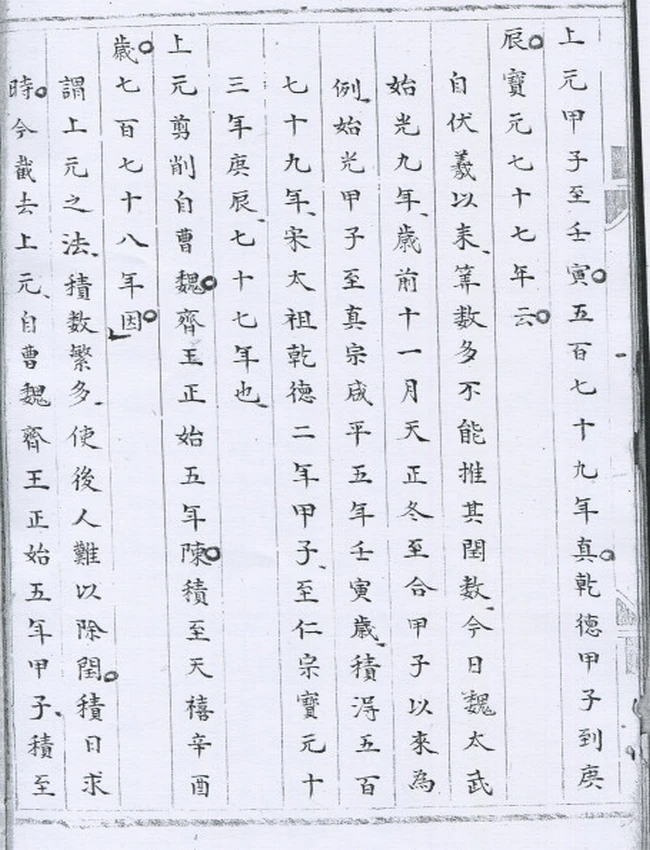 上元甲子至壬寅五百七十九年真乾德甲子到庚
辰寶元七十七年云
自伏羲以来筭数多不能推其閏数今日魏太武
始光九年歳前十一月天正冬至合甲子以來為
例始光甲子至真宗咸平五年壬寅歳積得五百
七十九年宋太祖乾德二年甲子至仁宗寶元十
三年庚辰七十七年也
上元剪削自曹魏齊王正始五年陳積至天禧辛酉
歳七百七十八年因
謂上元之法積数繁多使後人難以除閏積日求
時今截去上元自曹魏齊王正始五年甲子積至